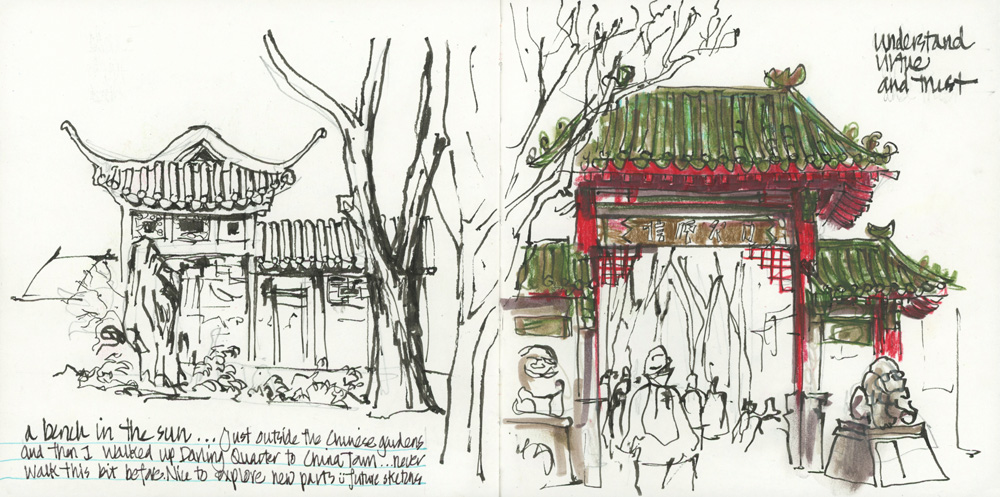 a bench in the sun... Just outside the Chinese gardens
and then I walked up Darling Quarter to ChinaTown...never
walk this bit before. Nice to explore new parts future sketches
understand
virtue
and trust